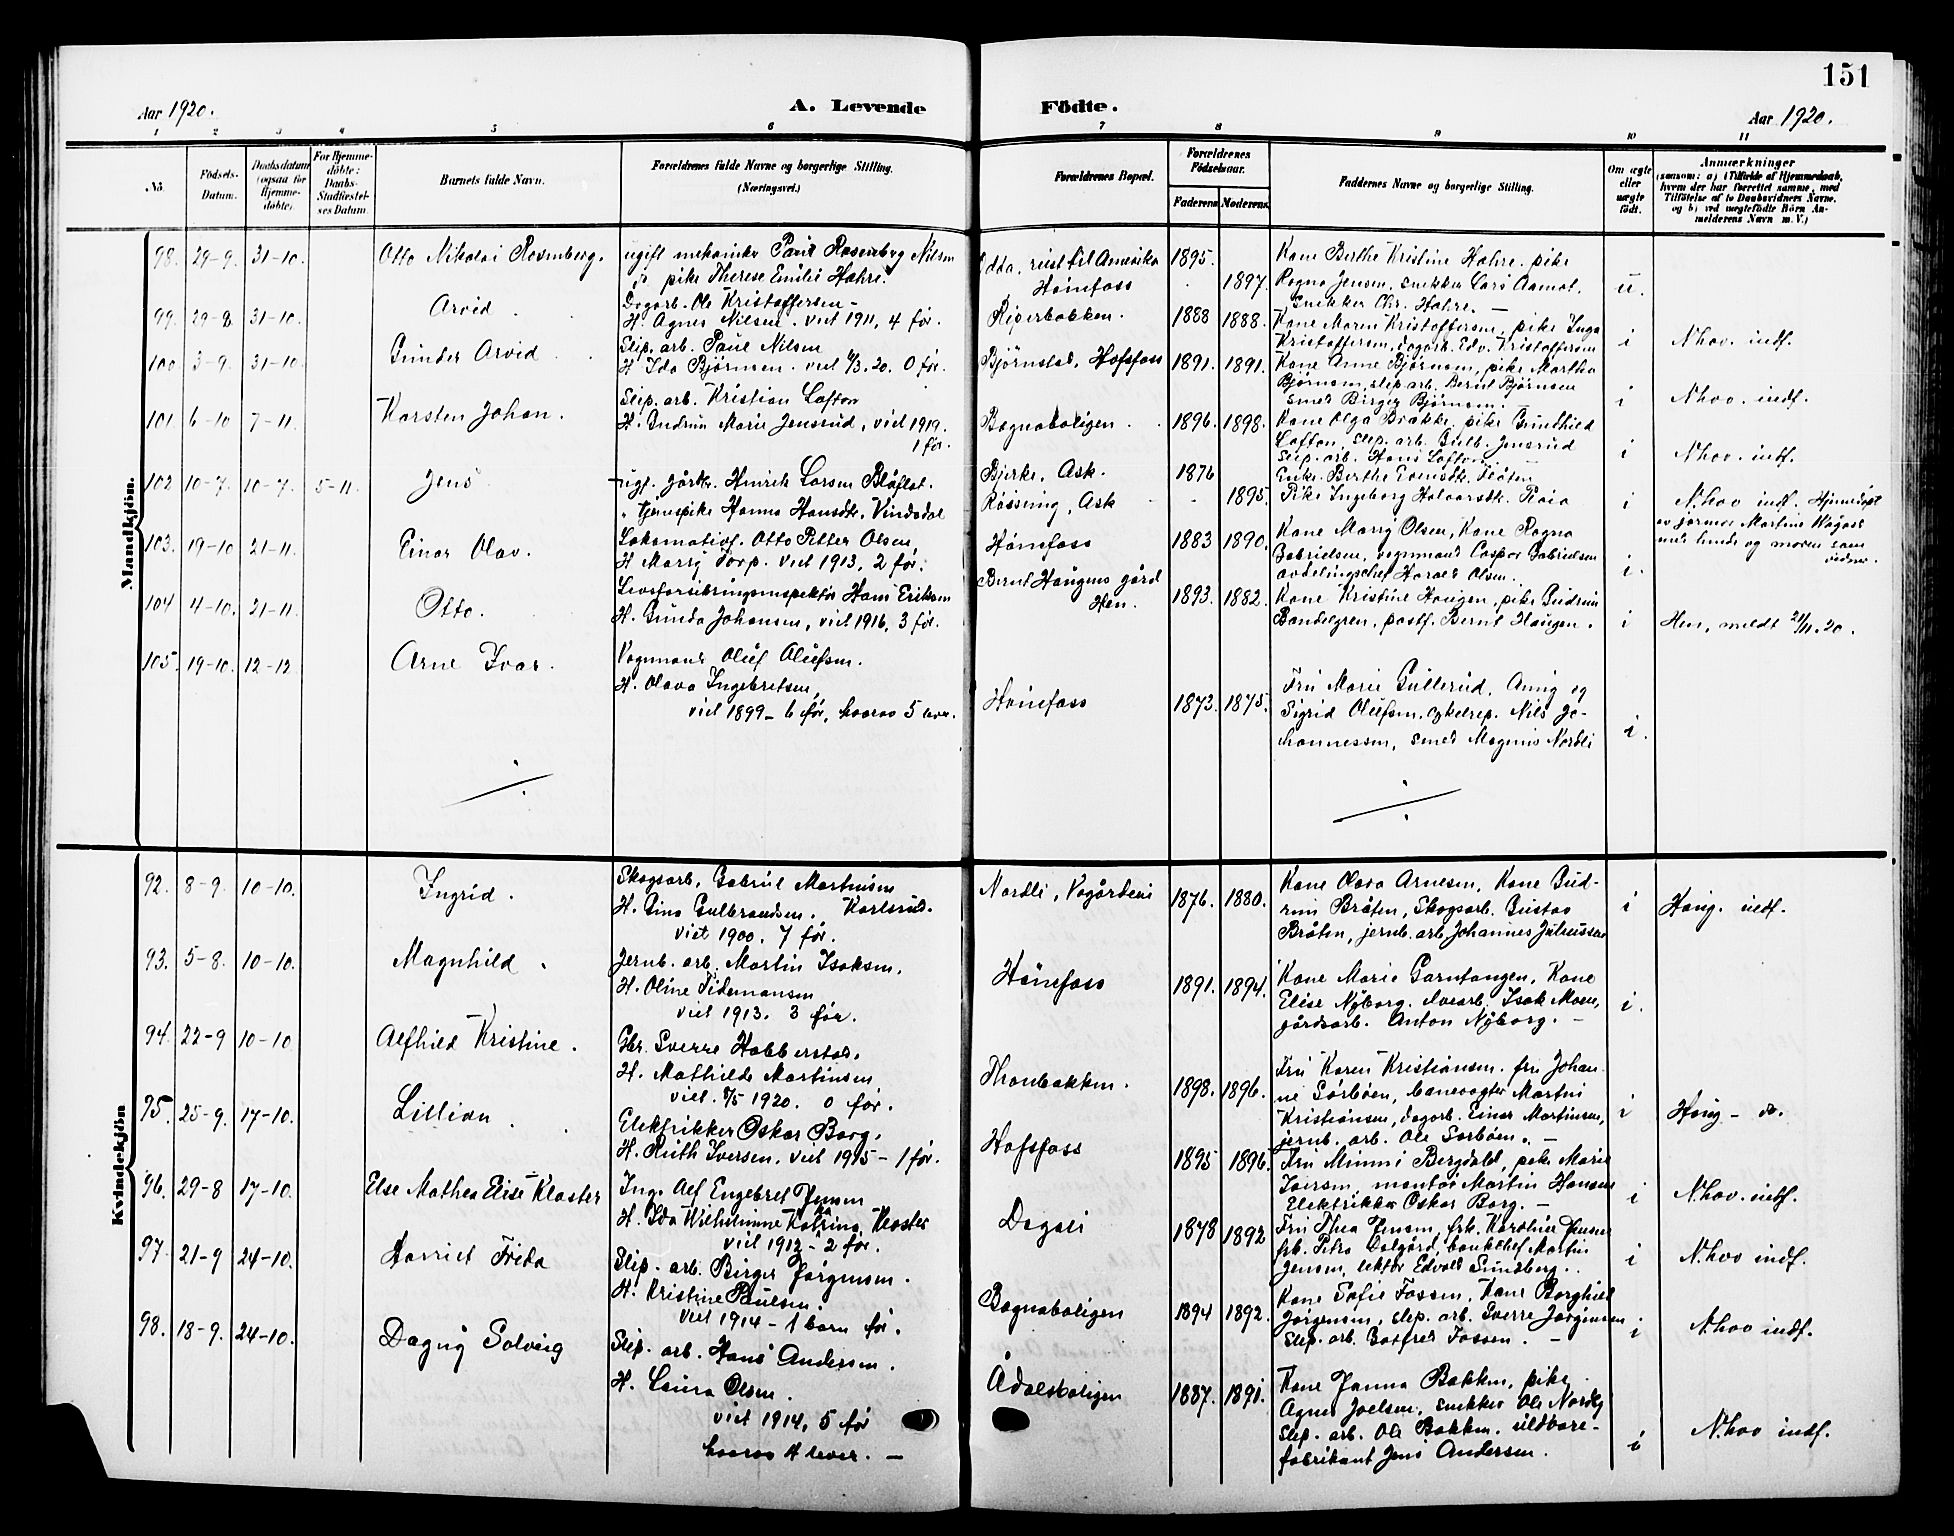 151
Aar 1920.
A. Levende
Födte.
Aar 1920.
1 2 3 4 5 6 7 8 9 10 11
No.
Födsels-
Datum.
Daabsdatum
(ogsaa for
Hjemme-
döbte).
For Hjemme-
döbte:
Daabs-
Stadfæstel-
ses Datum.
Barnets fulde Navn.
Forældrenes fulde Navne og borgerlige Stilling.
(Næringsvei.)
Forældrenes Bopæl.
Forældrenes
Födselsaar.
Faderens
Moderens
Faddernes Navne og borgerlige Stilling.
Om ægte
eller
uægte
födt.
Anmærkninger
(saasom: a) i Tilfælde af Hjemmedaab,
hvem der har forrettet samme, med
Tilföielse af to Daabsvidners Navne,
og b) ved uægtefödte Börn An-
melderens Navn m. V.)
Mandkjön.
98. 29-9. 31-10. Otto Nikolai Rosenberg.
ugift mekaniker Paul Rosenberg Nilsen
pike Therese Emilie Hahre.
reist til Amerika
Hönefoss
1895.
1897.
Kone Berthe Kristine Hahre. pike
Ragna Jensen. snekker Lars Aamot.
Snekker Chr. Hahre. —
u.
99. 29-8. 31-10. Arvid
Dagarb. Ole Kristoffersen -
H. Agnes Nilsen. viet 1911, 4 før.
1888 1888.
Kone Maren Kristoffersen, pike Inga
Kristoffersen, dagarb. Edv. Kristoffersen
i
N.hov. indf.
100 3-9. 31-10. Gunder Arvid
Slip. arb. Paul Nilsen
H. Ida Bjørnsen. viet 4/3. 20. 0 før.
Bjørnstad, Hofsfoss
1891. 1891.
Kone Anne Bjørnsen, pike Martha
Bjørnsen, slip. arb. Bernt Bjørnsen
smed Birger Bjørnsen. —
i
N.hov. indf.
101. 6-10 7-11. Karsten Johan.
Slip. arb. Kristian Lofton
H. Gudrun Marie Jensrud, viet 1919.
1 før.
Bægnaboligen.
1896. 1898.
Kone Olga Brakke. pike Gunhild
Lofton, slip. arb. Gulb. Jensrud
Slip. arb. Hans Lofton
i
N.hov. indf.
102 10-7. 10-7. 5-11. Jens
ugf. Henrik Larsen Blåflat.
tjenespike Hanna Hansdtr. Vindsdal
Bjerke, Ask.
Røssing, Ask
1876
1895.
Enke Berthe
Pike Ingeborg
i
N.hov indf. Hjemdøpt
av jormor Martine
som
vidner.
103. 19-10 21-11. Einar Olav.
Lokomotivf. Otto Petter Olsen
H. Marry Torp. viet 1913, 2 før.
Hönefoss
1883 1890.
Kone Marry Olsen, Kone Ragna
Gabrielsen, vognmand Casper Gabrielsen
avdelingschef Harald Olsen.
i.
104 4-10. 21-11. Otto.
Livsforsikringsinspektør Hans Eriksen
H. Gunda Johansen, viet 1916, 3 før.
Bernt Haugens gård
Hen.
1893. 1882.
Kone Kristine Haugen, pike Gudrun
Bondegren, postf. Bernt Haugen.
i
Hen, meldt 21/11. 20.
105. 19-10. 12-12 Arne Ivar.
Vognmand Oluf Olufsen.
H. Olava Ingebretsen,
viet 1899- 6 før, hvorav 5 lever.
Hönefoss
1873. 1875.
Fru Marie Gullerud, Anny og
Sigrid Olufsen, cykelrep. Nils Jo-
hannessen, smed Magnus Nordli
i.
Kvindekjön
92. 8-9. 10-10. Ingrid.
Skogsarb. Gabriel Martinsen
H. Gina Gulbrandsen. Karlsrud.
viet 1900. 7 før.
Nordli, Vågårdeie
1876. 1880.
Kone Olava Arnesen, Kone Gud-
run Bråten, Skogsarb. Gustav
Bråten, jernb. arb. Johannes Juliussen
i
Haug. indf.
93. 5-8. 10-10. Magnhild
Jernb. arb. Martin Isaksen.
H. Oline Tidemansen
viet 1913. 3 før.
Hönefoss
1891. 1894.
Kone Marie Garntangen, Kone
Elise Nyborg, elvearb. Isak Moen,
gårdsarb. Anton Nyborg. —
i.
94. 22-9 10-10 Alfhild Kristine.
Gbr. Sverre Hobberstad.
H. Mathilde Martinsen
viet. 8/5 1920. 0 før.
Thonbakken.
1898. 1896.
Fru Karen Kristiansen, fru Johan-
ne Sørbøen, banevogter Martin
Kristiansen, dagarb. Einar Martinsen,
jernb. arb. Ole Sørbøen. —
i
Haug - do.
95. 25-9. 17-10. Lillian.
Elektrikker Oskar Borg.
H. Ruth Iversen. viet 1915 - 1 før.
Hofsfoss
1895 1896.
Fru Minni Bergdahl, pike Marie
Iversen, montør Martin Hansen
Elektrikker Oskar Borg. —
i
N.hov. indf.
96. 29-8 17-10. Else Mathea Elise Kloster
Ing. Alf Engebret Jensen
H. Ida Wilhelmine Katrina Kloster
viet 1912 - 2 før.
Dagali
1878 1892
Fru Thea Jensen, frk. Karoline Jensen
frk. Petra Dalgård, bankchef Martin
Jensen, lektor Edvald Sundberg.
i
N.hov indf.
97. 21-9 24-10. Harriet Frida
Slip. arb. Birger Jørgensen.
H. Kristine Paulsen.
viet 1914 - 1 barn før.
Bægnaboligen
1894 1892.
Kone Sofie Fossen, Kone Borghild
Jørgensen, slip. arb. Sverre Jørgensen
Slip. arb. Gotfred Fossen. —
i
N.hov indf.
98. 18-9. 24-10. Dagny Solveig
Slip. arb. Hans Andersen.
H. Laura Olsen.
viet 1914, 5 før
hvorav 4 lever. —
Ådalsboligen
1887. 1891.
Kone Janna Bakken, pike
Agnes Joelsen, snekker Ole Nordby
slip. arb. Ole Bakken. uldvare-
fabrikant Jens Andersen.
i
N.hov indf.